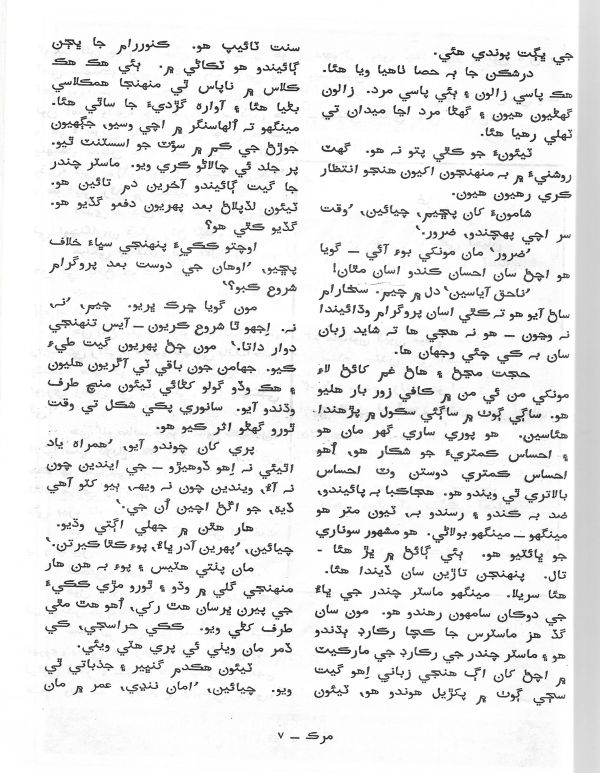 جي ڀڳت پوندي هئي.
درشڪن جا به حصا ٺاهيا ويا هئا.
هڪ پاسي زالون ۽ ٻئي پاسي مرد. زالون
گهڻيون هيون ۽ گهڻا مرد اڃا ميدان تي
ٽهلي رهيا هئا.
ٽيئونءَ جو ڪٿي پتو نہ هو. گهٽ
روشنيءَ ۾ به منهنجون اکيون هنجو انتظار
ڪري رهيون هيون.
شامونءَ کان پڇيم، چيائين، ’وقت
سر اچي پهچندو، ضرور.‘
’ضرور‘ مان مونکي بوءِ آئي — گويا
هو اچڻ سان احسان ڪندو اسان مٿان!
’ناحق آياسين‘ دل ۾ چيم. سخارام
ساڻ آيو هو ته ڪٿي اسان پروگرام وڌائيندا
نه وڃون — هو نه هجي ها ته شايد زبان
سان به ڪي چئي وجهان ها.
حجت مڃڻ ۽ هاڻ غم کائڻ لاءِ
مونکي من ئي من ۾ ڪافي زور بار هليو
هو. ساڳي ڳوٺ ۾ ساڳئي سڪول ۾ پڙهندا
هئاسين. هو پوري ساري گهر مان هو
۽ احساس ڪمتريءَ جو شڪار هو، اُهو
احساس ڪمتري دوستن وٽ احساس
بالاتري ٿي ويندو هو. هٻاڪيا به پائيندو،
ضد به ڪندو ۽ رسندو به، ٽيون متر هو
مينگهو — مينگهو ٻولاڻي. هو مشهور سوناري
جو ڀائٽيو هو. ٻئي ڳائڻ ۾ پڙ هئا -
تال. پنهنجن تاڙين سان ڏيندا هئا.
هئا سريلا. مينگهو ماستر چندر جي ڀاءُ
جي دوڪان سامهون رهندو هو. مون سان
گڏ هز ماسٽرس جا ڪچا رڪارڊ ٻڌندو
هو ۽ ماستر چندر جي رڪارڊ جي مارڪيٽ
۾ اچڻ کان اڳ هنجي زباني اِهو گيت
سڄي ڳوٺ ۾ پکڙيل هوندو هو، ٽيئون
سنت ٽائيپ هو. ڪنوررام جا ڀڄن
ڳائيندو هو ٽڪاڻي ۾. ٻئي هڪ هڪ
ڪلاس ۾ ناپاس ٿي منهنجا همڪلاسي
بڻيا هئا ۽ آواره گرديءَ جا ساٿي هئا.
مينگهو ته اُلهاسنگر ۾ اچي وسيو، جڳهيون
جوڙڻ جي ڪم ۾ سؤٽ جو اسسٽنٽ ٿيو.
پر جلد ئي چالاڻو ڪري ويو. ماستر چندر
جا گيت ڳائيندو آخرين دم تائين هو.
ٽيئون لڏپلاڻ بعد پهريون دفعو گڏيو هو.
گڏيو ڪٿي هو؟
اوچتو ڪڪيءَ پنهنجي سڀاءَ خلاف
پڇيو، ’اوهان جي دوست بعد پروگرام
شروع ڪبو؟‘
مون گويا چرڪ ڀريو. چيم، ’نہ،
نہ. اِجهو ٿا شروع ڪريون — آيس تنهنجي
دوار داتا.‘ مون جڻ پهريون گيت طيءِ
ڪيو. جهامن جون باقي ٽي آڱريون هليون
۽ هڪ وڏو گولو کڻائي ٽيئون منچ طرف
وڌندو آيو. سانوري پڪي شڪل تي وقت
ٿورو گهڻو اثر ڪيو هو.
پري کان چوندو آيو، ’همراه ياد
اٿيئي نه اِهو ڏوهيڙو — جي ايندين چون
نه آءُ، ويندين چون نه ويهه، ٻيو ڪٽو آهي
ڏيهه، جو اڱڻ اچين اُن جي.‘
هار هٿن ۾ جهلي اڳتي وڌيو.
چيائين، ’پهرين آدر ڀاءُ، پوءِ ڪٿا ڪيرتن.‘
مان پنتي هٽيس ۽ پوءِ به هن هار
منهنجي گلي ۾ وڌو ۽ ٿورو مڙي ڪڪيءَ
جي پيرن ڀرسان هٿ رکي، اُهو هٿ مٿي
طرف کڻي ويو. ڪڪي حراسجي، ڪي
ڏمر مان ويني ئي پري هٽي ويئي.
ٽيئون هڪدم گنڀير ۽ جذباتي ٿي
ويو. چيائين، ’امان ننڍي، عمر ۾ مان
مرڪ — ٧